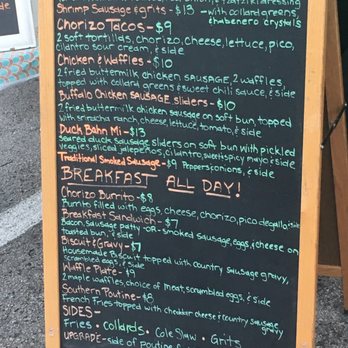 dressing
Shrimp Sausage & grits - $13 - with collard greens,
& habanero crystals
Chorizo Tacos - $9
2 soft tortillas, chorizo, cheese, lettuce, pico,
cilantro sour cream, & side
Chicken & Waffles - $10
2 fried buttermilk chicken sausage, 2 waffles,
topped with collard greens & sweet chili sauce, & side
Buffalo Chicken Sausage Sliders - $10
2 fried buttermilk chicken sausage on soft bun, topped
with sriracha ranch, cheese, lettuce, tomato, & side
Duck Bahn Mi - $13
Seared duck sausage sliders on soft bun with pickled
veggies, sliced jalepeños, cilantro, sweet & spicy mayo & side
Traditional Smoked Sausage - $9 Peppers & onions, & side
Breakfast All Day!
Chorizo Burrito - $8
Burrito filled with eggs, cheese, chorizo, pico de gallo & side
Breakfast Sandwich - $7
Bacon, sausage patty -or- smoked sausage, eggs, & cheese on
toasted bun, & side
Biscuit & Gravy - $7
Housemade Biscuit topped with country sausage gravy,
scrambled eggs, & side
Waffle Plate - $9
2 maple waffles, choice of meat, scrambled eggs, & side
Southern Poutine - $8
French Fries topped with cheddar cheese & country sausage
gravy
SIDES -
Fries • Collards • Cole Slaw • Grits
UPGRADE - side of poutine